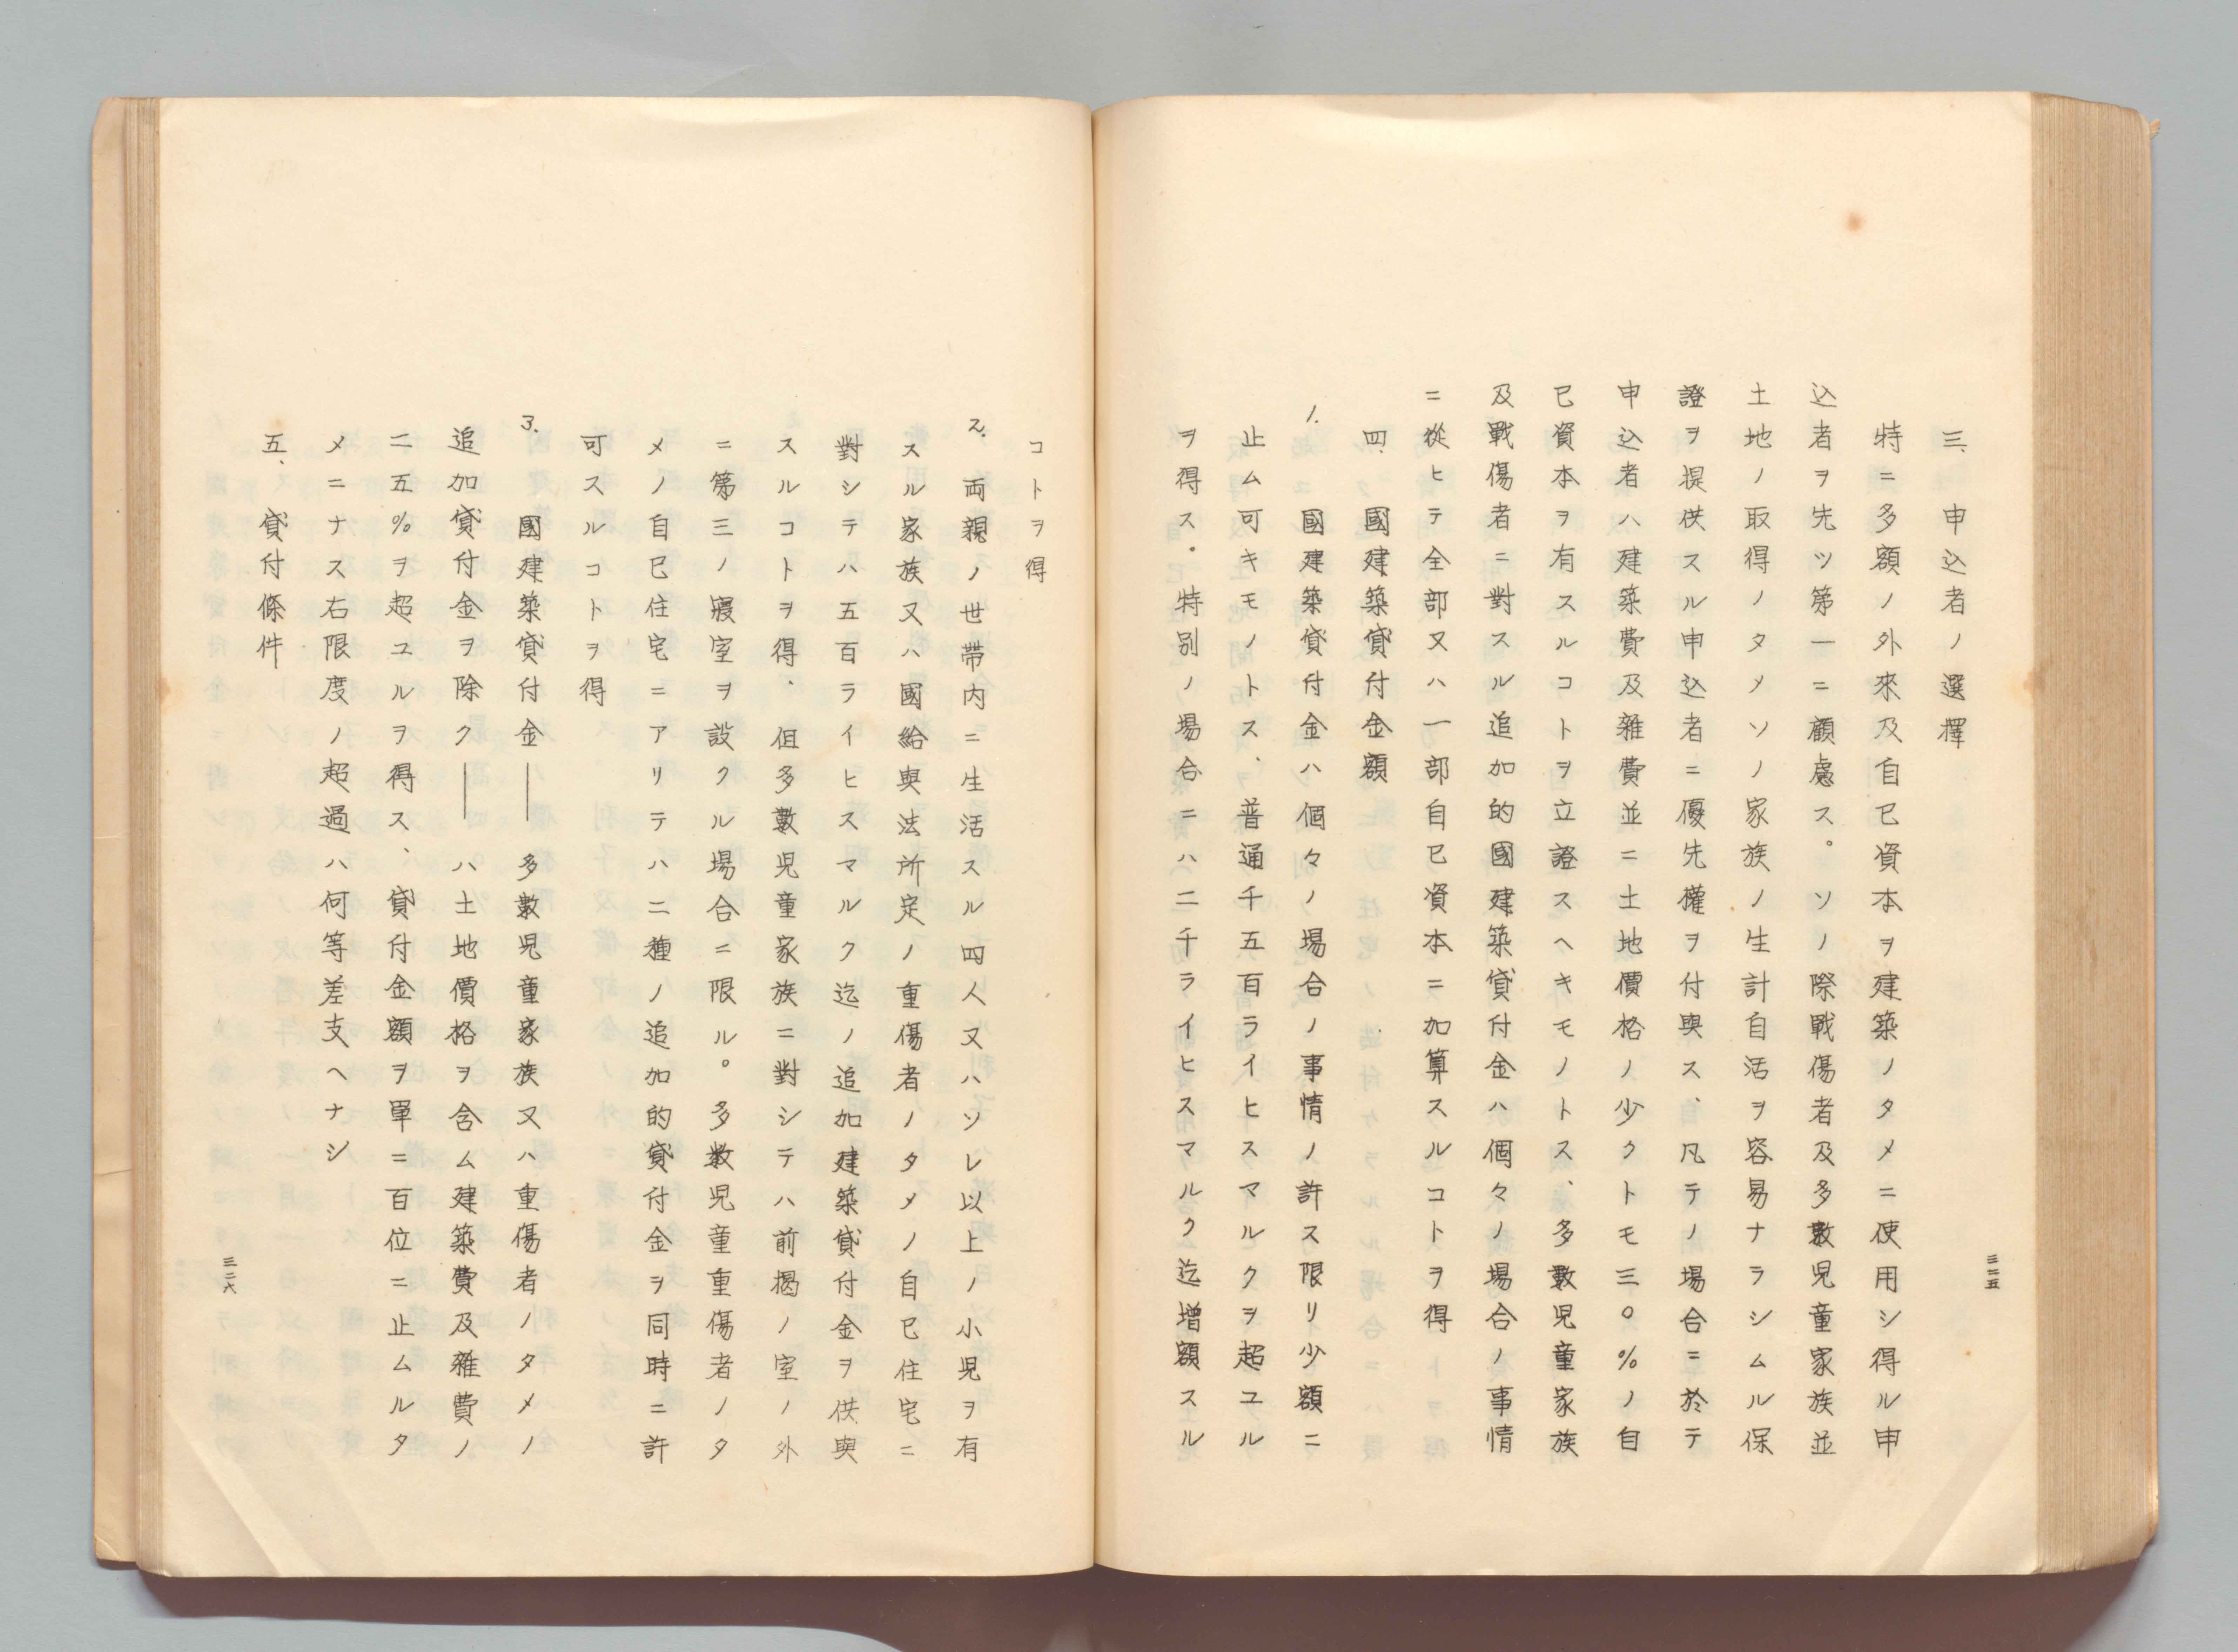 三、申込者ノ選擇
特ニ多額ノ外來及自己資本ヲ建築ノタメニ使用シ得ル申
込者ヲ先ツ第一ニ顧慮ス。ソノ際戰傷者及多數児童家族並
土地ノ取得ノタメソノ家族ノ生計自活ヲ容易ナラシムル保
證ヲ提供スル申込者ニ優先權ヲ付與ス、凡テノ場合ニ於テ
申込者ハ建築費及雜費並ニ土地價格ノ少クトモ三〇%ノ自
己資本ヲ有スルコトヲ立證スヘキモノトス、多數児童家族
及戰傷者ニ對スル追加的國建築貸付金ハ個々ノ場合ノ事情
ニ從ヒテ全部又ハ一部自己資本ニ加算スルコトヲ得
四、國建築貸付金額
1. 國建築貸付金ハ個々ノ場合ノ事情ノ許ス限リ少額ニ
止ム可キモノトス、普通千五百ライヒスマルクヲ超ユル
ヲ得ス。特別ノ場合ニハ二千ライヒスマルク迄増額スル
三二五
コトヲ得
2. 両親ノ世帯内ニ生活スル四人又ハソレ以上ノ小児ヲ有
スル家族又ハ國給與法所定ノ重傷者ノタメノ自己住宅ニ
對シテハ五百ライヒスマルク迄ノ追加建築貸付金ヲ供與
スルコトヲ得、但多數児童家族ニ對シテハ前掲ノ室ノ外
ニ第三ノ寢室ヲ設クル場合ニ限ル。多數児童重傷者ノタ
メノ自己住宅ニアリテハ二種ノ追加的貸付金ヲ同時ニ許
可スルコトヲ得
3. 國建築貸付金――多數児童家族又ハ重傷者ノタメノ
追加貸付金ヲ除ク――ハ土地價格ヲ含ム建築費及雜費ノ
二五%ヲ超ユルヲ得ス、貸付金額ヲ單ニ百位ニ止ムルタ
メニナス右限度ノ超過ハ何等差支ヘナシ
五、貸付條件
三二六